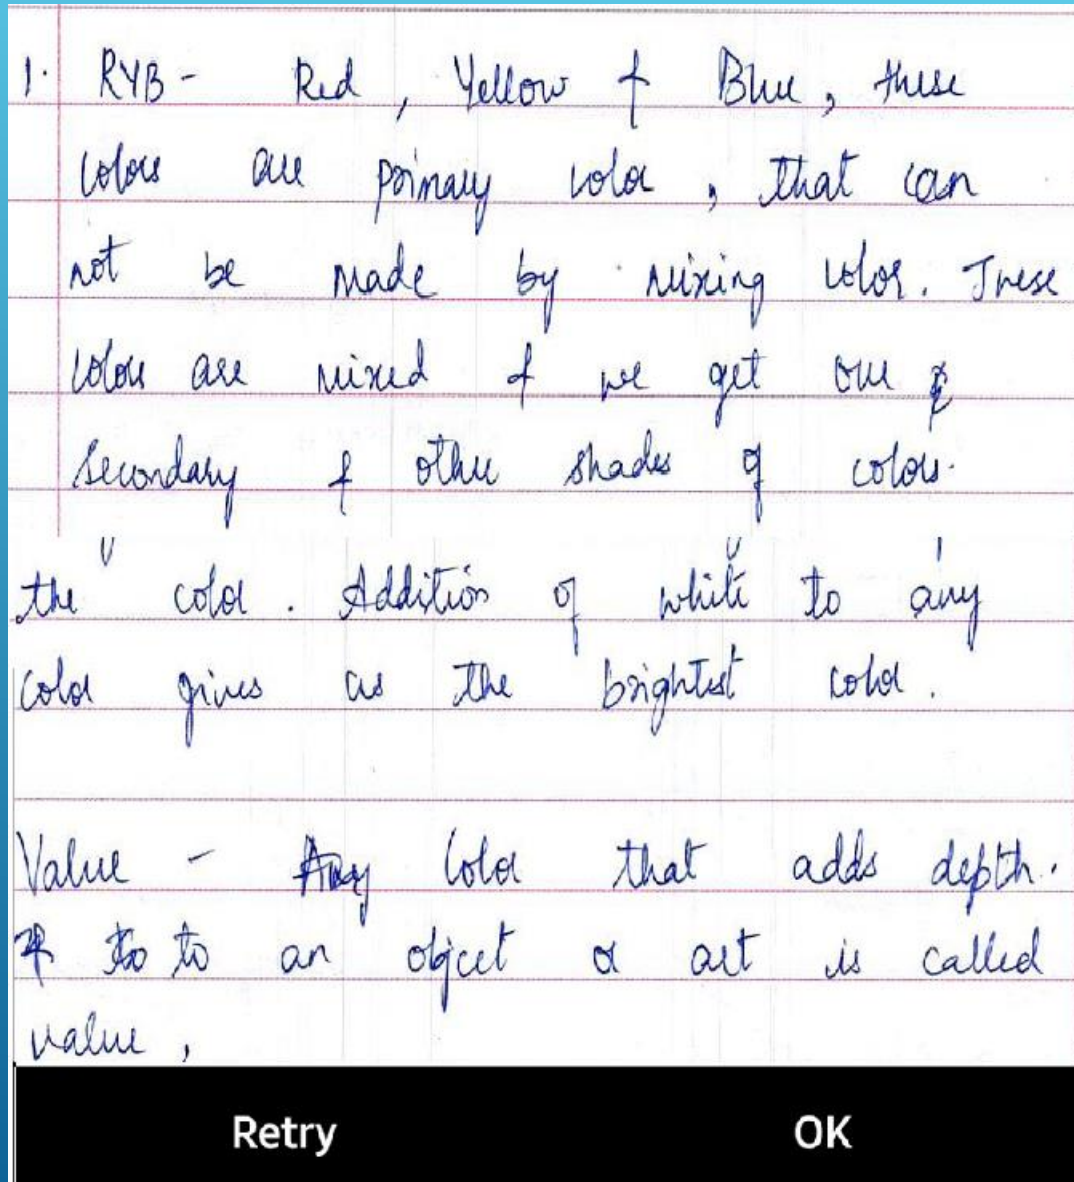 1. RYB - Red, Yellow & Blue, these
colors are primary color, that can
not be made by mixing color. These
colors are mixed & we get our
secondary & other shades of colors.
the color. Addition of white to any
color gives as the brightest color.
Value - Any Color that adds depth.
to to an object or art is called
value,
Retry OK